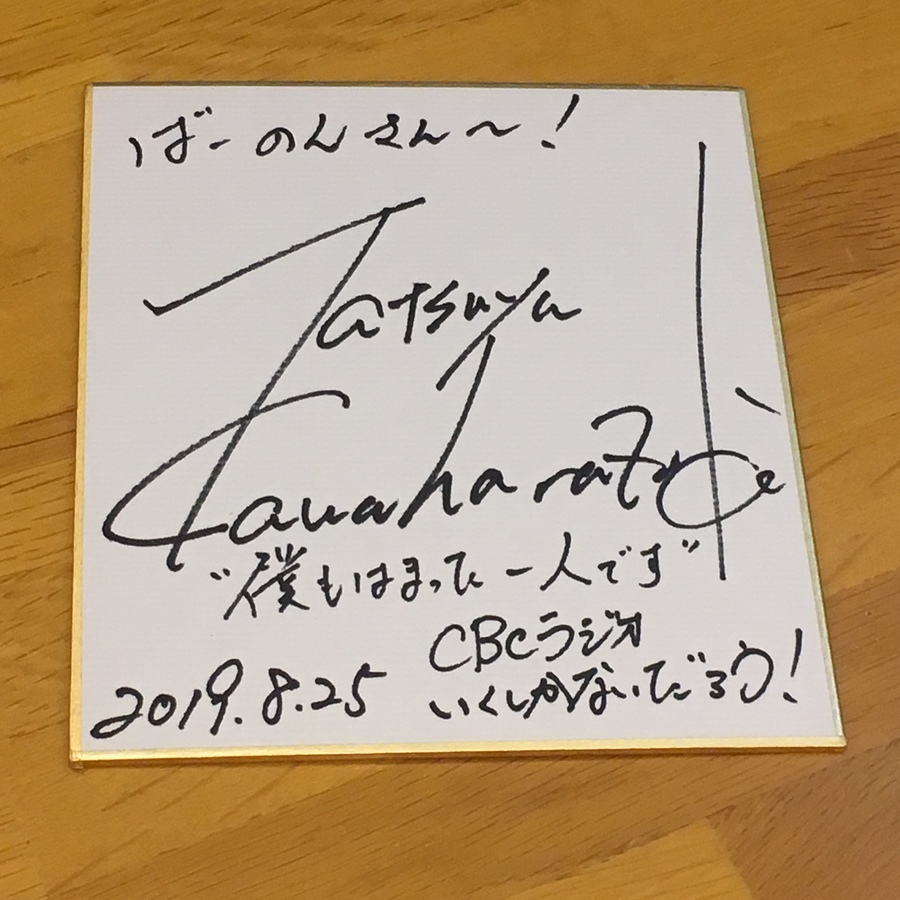 ばーのんさん〜！
Tatsuya
Kawaharazuke
"僕もはまった一人です"
CBCラジオ
いくしかないだろう！
2019.8.25